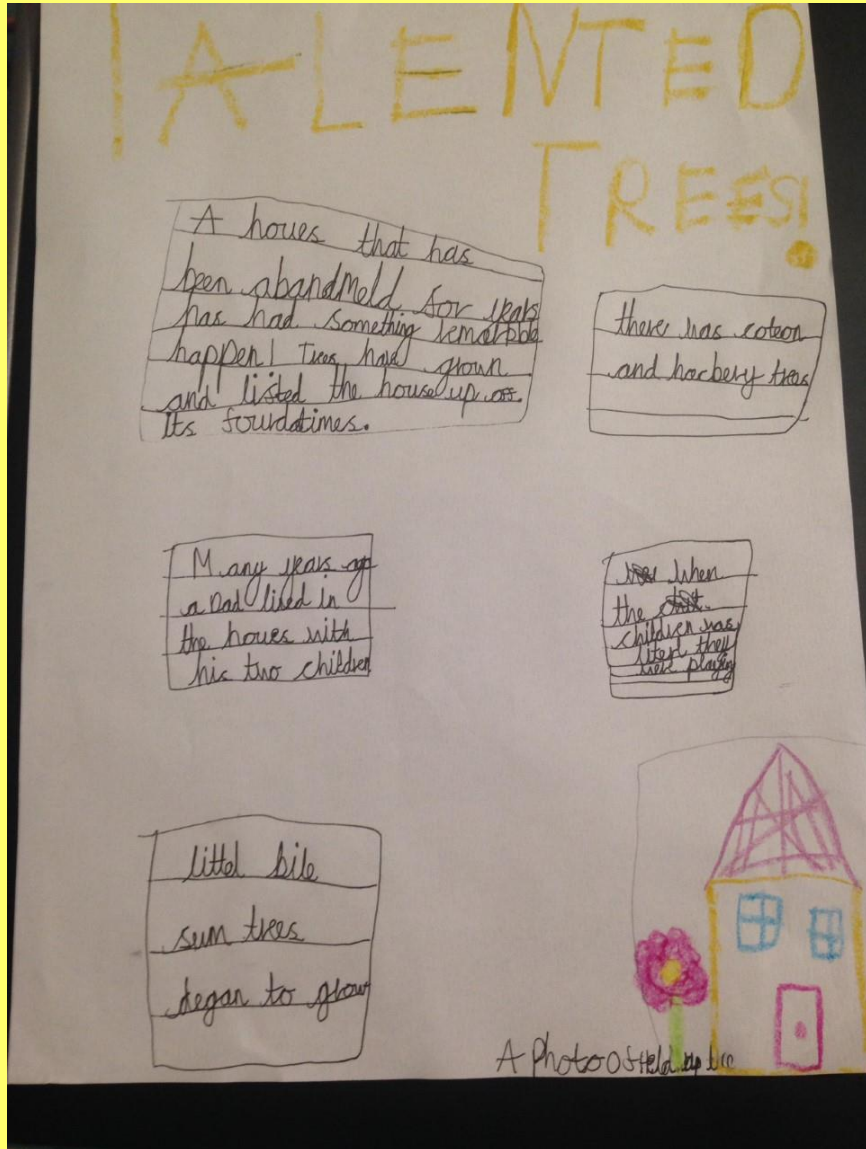 TALENTED
TREES!
A houes that has
been abandmeld for years
has had something remarpble
happen! Trees have grown
and lifted the house up off
its fourdatimes.
there was coteon
and hacbery trees
Many years ago
a Dad lived in
the houes with
his two children
when
the
children was
they
were playing
littel bile
sum trees
began to grow
A photo of Held up